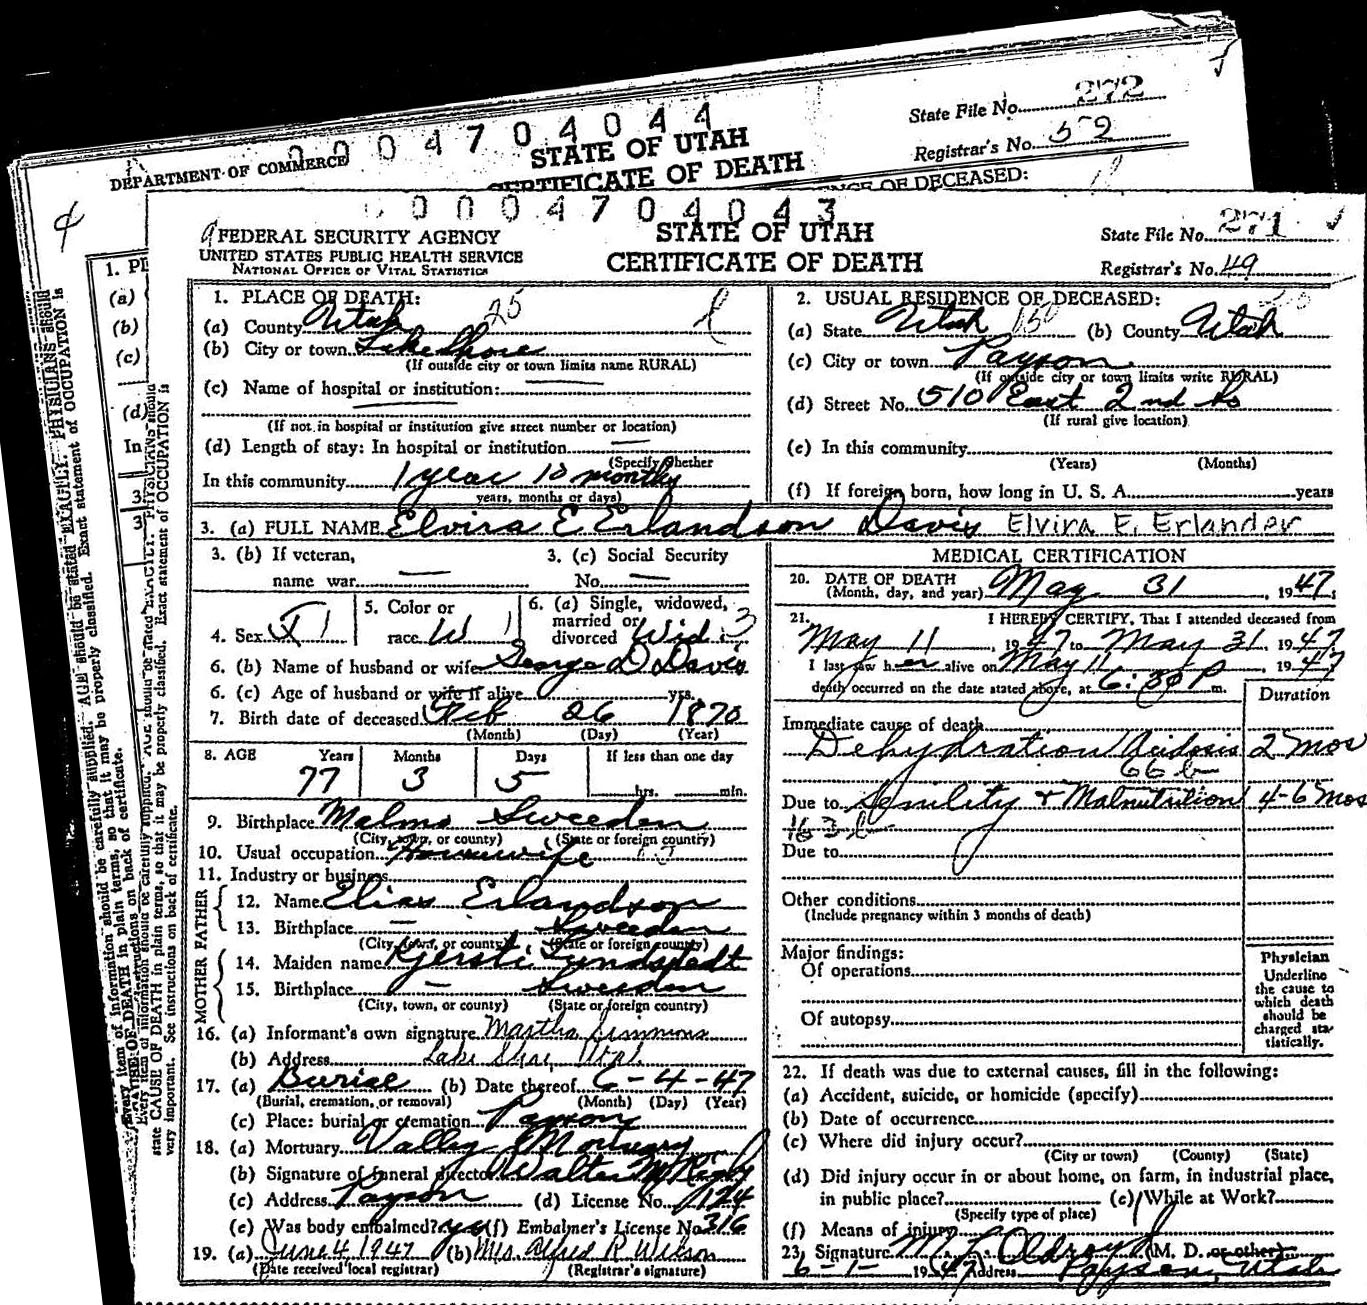 State File No. 272
Registrar's No. 52
004704044
DEPARTMENT OF COMMERCE
STATE OF UTAH
CERTIFICATE OF DEATH
0004704043
FEDERAL SECURITY AGENCY
UNITED STATES PUBLIC HEALTH SERVICE
NATIONAL OFFICE OF VITAL STATISTICS
STATE OF UTAH
CERTIFICATE OF DEATH
State File No. 271
Registrar's No. 49
1. PLACE OF DEATH: 25
(a) County Utah
(b) City or town Lake Shore
(If outside city or town limits name RURAL)
(c) Name of hospital or institution:
(If not in hospital or institution give street number or location)
(d) Length of stay: In hospital or institution
(Specify whether
In this community 1 year 10 months
years, months or days)
2. USUAL RESIDENCE OF DECEASED:
(a) State Utah (b) County Utah
(c) City or town Payson
(If outside city or town limits write RURAL)
(d) Street No. 510 East 2nd So
(If rural give location)
(e) In this community
(Years) (Months)
(f) If foreign born, how long in U. S. A. years
3. (a) FULL NAME Elvira E Erlandson Davis Elvira E. Erlander
3. (b) If veteran,
name war
3. (c) Social Security
No.
4. Sex F 1
5. Color or
race W 1
6. (a) Single, widowed,
married or
divorced Wid 3
6. (b) Name of husband or wife George D Davis
6. (c) Age of husband or wife if alive yrs.
7. Birth date of deceased Feb 26 1870
(Month) (Day) (Year)
8. AGE Years Months Days If less than one day
77 3 5 hrs. min.
9. Birthplace Malmo Sweeden
(City, town, or county) (State or foreign country)
10. Usual occupation Housewife
11. Industry or business
FATHER
12. Name Elias Erlandson
13. Birthplace Sweeden
(City, town, or county) (State or foreign country)
MOTHER
14. Maiden name Kjersti Lundstedt
15. Birthplace Sweeden
(City, town, or county) (State or foreign country)
16. (a) Informant's own signature Martha Simmons
(b) Address Lake Shore, Utah
17. (a) Burial (b) Date thereof 6-4-47
(Burial, cremation, or removal) (Month) (Day) (Year)
(c) Place: burial or cremation Payson
18. (a) Mortuary Valley Mortuary
(b) Signature of funeral director Walter M Rigby
(c) Address Payson (d) License No. 124
(e) Was body embalmed? yes (f) Embalmer's License No. 316
19. (a) June 4 1947 (b) Mrs. Alfred R Wilson
(Date received local registrar) (Registrar's signature)
MEDICAL CERTIFICATION
20. DATE OF DEATH
(Month, day, and year) May 31, 1947;
21. I HEREBY CERTIFY, That I attended deceased from
May 11, 1947 to May 31, 1947
I last saw her alive on May 11 1947
death occurred on the date stated above, at 6:30 P m.
Duration
Immediate cause of death
Dehydration / Acidosis 2 mos
66 b
Due to Senility & Malnutrition 4-6 mos
163 b
Due to
Other conditions
(Include pregnancy within 3 months of death)
Major findings:
Of operations
Of autopsy
Physician
Underline
the cause to
which death
should be
charged sta-
tistically.
22. If death was due to external causes, fill in the following:
(a) Accident, suicide, or homicide (specify)
(b) Date of occurrence
(c) Where did injury occur?
(City or town) (County) (State)
(d) Did injury occur in or about home, on farm, in industrial place,
in public place? (e) While at Work?
(Specify type of place)
(f) Means of injury
23. Signature M. L. Oldroyd (M. D. or other)
6-1- 1947 Address Payson, Utah